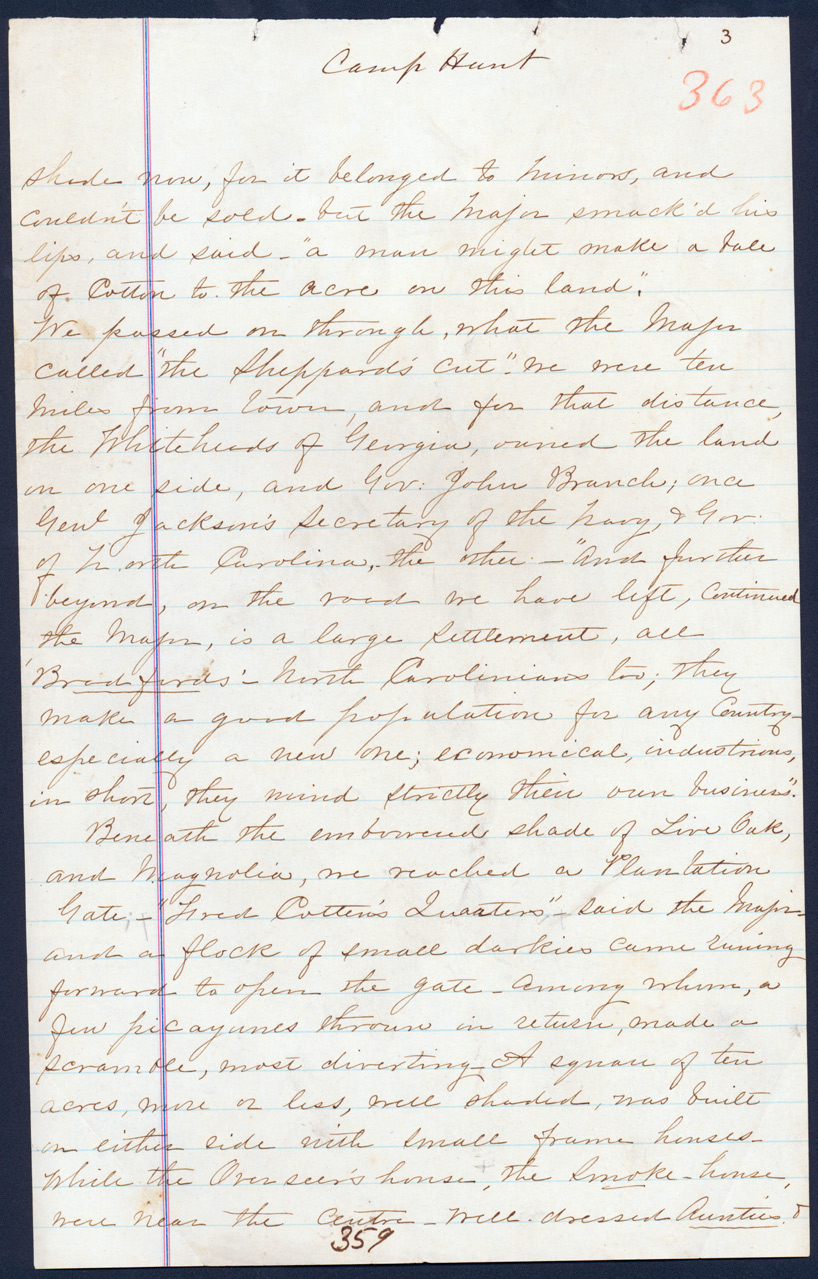 3
Camp Hunt
363
shade now, for it belonged to minors, and
couldn't be sold - but the Major smack'd his
lips, and said - "a man might make a bale
of Cotton to the acre on this land".
We passed on through, what the Major
called "the Sheppard's cut". We were ten
miles from town, and for that distance,
the Whiteheads of Georgia, owned the land
on one side, and Gov: John Branch; once
Genl Jackson's Secretary of the Navy, & Gov:
of North Carolina, the other - "And further
beyond, on the road we have left, continued
the Major, is a large settlement, all
Bradfords' - North Carolinians too; they
make a good population for any Country -
especially a new one; economical, industrious,
in short, they mind strictly their own business".
Beneath the embowered shade of Live Oak,
and Magnolia, we reached a Plantation
Gate - "Fred Cotten's Quaaters" - said the Major -
and a flock of small darkies came runing
forward to open the gate - among whom, a
few picayunes thrown in return, made a
scramble, most diverting - A square of ten
acres, more or less, well shaded, was built
on either side with small frame houses -
While the Overseer's house, the Smoke-house,
were near the centre - well-dressed Aunties &
359